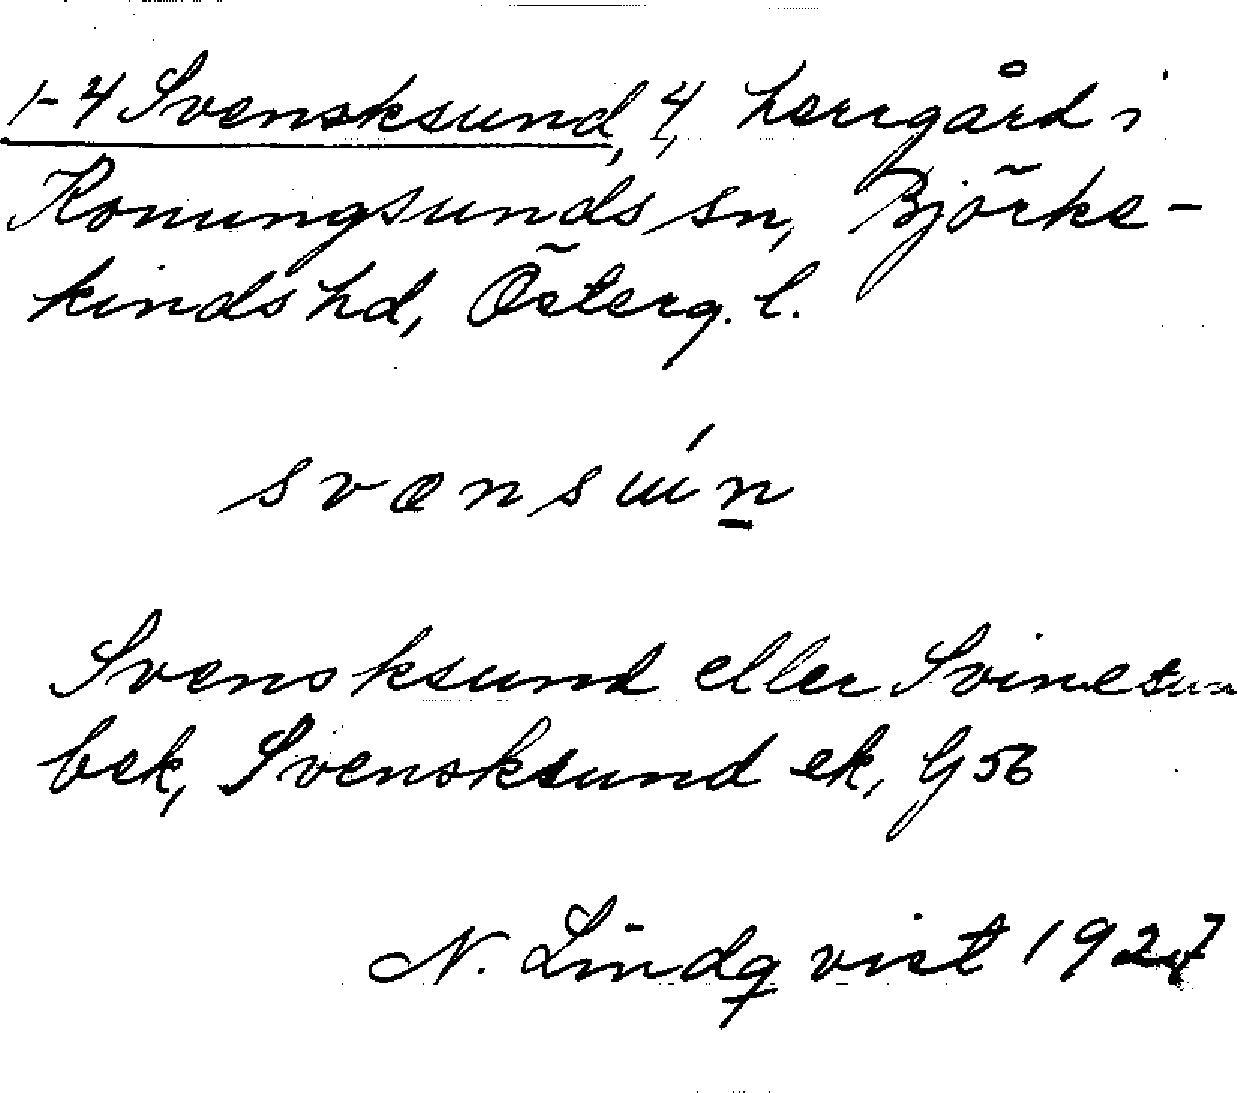 1-4 Svensksund, 4, herrgård i
Konungsunds sn, Björke-
kinds hd, Österg. l.
svænsɯ́n̲
Svensksund eller Svinesun
bek, Svensksund ek, G 56
N. Lindqvist 1927